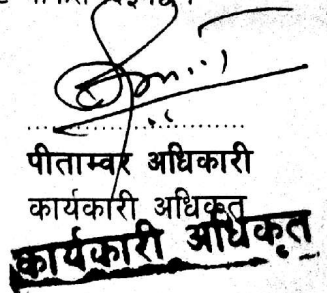 पीताम्वर अधिकारी
कार्यकारी अधिकृत
कार्यकारी अधिकृत